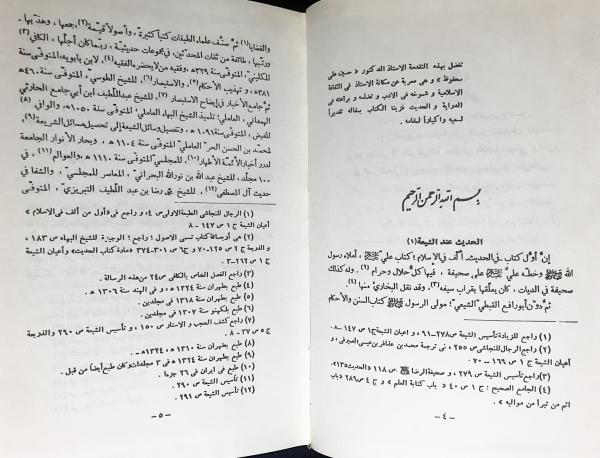 تفضل بهذه التقدمة الاستاذ الدكتور « حسين على
محفوظ » و هى معربة عن مكانة الاستاذ فى الثقافة
الاسلامية و شموخه فى الادب و تضلعه و براعته فى
الدراية و الحديث فزينا الكتاب بمقاله تقديراً
لسعيه و اكباراً لمقامه .
بسم الله الرحمن الرحيم
الحديث عند الشيعة (١)
إنّ أوّل كتاب ، فى الحديث ، ألّف فى الاسلام ؛ كتاب علىّ ، أملاه رسول
الله وخطّه علىّ على صحيفة ، فيها كلّ حلال وحرام (٢) . وله كذلك
صحيفة فى الديات ، كان يعلّقها بقراب سيفه (٣) ، وقد نقل البخارىّ منها (٤) .
ثمّ دوّن أبو رافع القبطىّ الشيعىّ ؛ مولى الرسول كتاب السنن والأحكام
(١) راجع للزيادة تأسيس الشيعة ص ٢٧٨-٩١ ، و اعيان الشيعة ج ١ ص ١٤٧-٨ .
(٢) راجع الرجال للنجاشى ص ٢٥٥ ، فى ترجمة محمد بن عذافر بن عيسى الصيرفى ، و
أعيان الشيعة ج ١ ص ١٦٦ - ٧٠ .
(٣) راجع تأسيس الشيعة ص ٢٧٩ ، و صحيفة الرضا ص ١١٨ « الحديث ١٣٥ » .
(٤) الجامع الصحيح : ج ١ ص ٤٠ « باب كتابة العلم » و ج ٤ ص ٢٨٩ « باب
اثم من تبرأ من مواليه » .
- ٤ -
والقضايا (١) ثمّ صنّف علماء الطبقات كتباً كثيرة ، وأصولاً قيّمة (٢) ، جمعها ، وهذّبها ،
ورتّبها ، طائفة من ثقات المحدّثين ، فى مجموعات حديثيّة ، ربّما كان أجلّها ، الكافى (٣)
للكلينىّ ، المتوفّى سنة ٣٢٩ هـ ، وفقيه من لا يحضره الفقيه (٤) ، لابن بابويه ، المتوفّى سنة
٣٨١ هـ ، و تهذيب الأحكام (٥) ، والاستبصار (٦) ، للشيخ الطوسىّ ، المتوفّى سنة ٤٦٠ هـ
ثمّ جامع الأخبار فى إيضاح الاستبصار (٧) ، للشيخ عبد اللطيف ابن أبى جامع الحارثىّ
الهمدانىّ ، العاملىّ ؛ تلميذ الشيخ البهاء العاملىّ ؛ المتوفّى سنة ١٠٥٠ هـ ، والوافى (٨)
للفيض ، المتوفّى سنة ١٠٩١ هـ ، وتفصيل وسائل الشيعة إلى تحصيل مسائل الشريعة (٩)
لمحمّد بن الحسن الحرّ العاملىّ ؛ المتوفّى سنة ١١٠٤ هـ ، وبحار الأنوار الجامعة
لدرر أخبار الأئمّة الأطهار (١٠) ، للمجلسىّ ؛ المتوفّى سنة ١١١٠ هـ ، والعوالم (١١) ، فى
١٠٠ مجلّد ، للشيخ عبد الله بن نور الله البحرانىّ ، المعاصر للمجلسىّ ، والشفا فى
حديث آل المصطفى (١٢) ، للشيخ محمّد رضا بن عبد اللّطيف التبريزىّ ، المتوفّى
(١) الرجال للنجاشى الطبعة الاولى ص ٤ ، و راجع فى « أول من ألف فى الاسلام »
أعيان الشيعة ج ١ ص ١٤٧ - ٨
(٢) هى أربعمائة كتاب تسمى الاصول ؛ راجع الوجيزة للشيخ البهاء ص ١٨٣ ،
و الذريعة ج ٢ ص ١٢٥-٧٠ و ج ٦ ص ٣٠١-٣٧٤ « مادة كتاب الحديث » و أعيان الشيعة
ج ١ ص ٢٦٢-٣ .
(٣) راجع الفصل الخاص بالكافى ص ٢٤ من هذه الرسالة .
(٤) طبع بطهران سنة ١٣٢٤ هـ ، و فى الهند سنة ١٣٠٦ هـ .
(٥) طبع بطهران سنة ١٣١٨ فى مجلدين .
(٦) طبع بلكهنو سنة ١٣٠٧ فى مجلدين .
(٧) راجع كشف الحجب و الاستار ص ١٥٠ ، و تأسيس الشيعة ص ٢٩٠ والذريعة
ج ٥ ص ٣٧ - ٨ .
(٨) طبع بطهران سنة ١٣١٠ هـ و ١٣٢٤ هـ .
(٩) طبع بطهران سنة ١٣٢٤ هـ فى ٣ مجلدات وكان طبع أيضاً من قبل .
(١٠) طبع فى ايران فى ٢٦ جزءاً .
(١١) تأسيس الشيعة ص ٢٩٠ .
(١٢) تأسيس الشيعة ص ٢٩١ .
- ٥ -